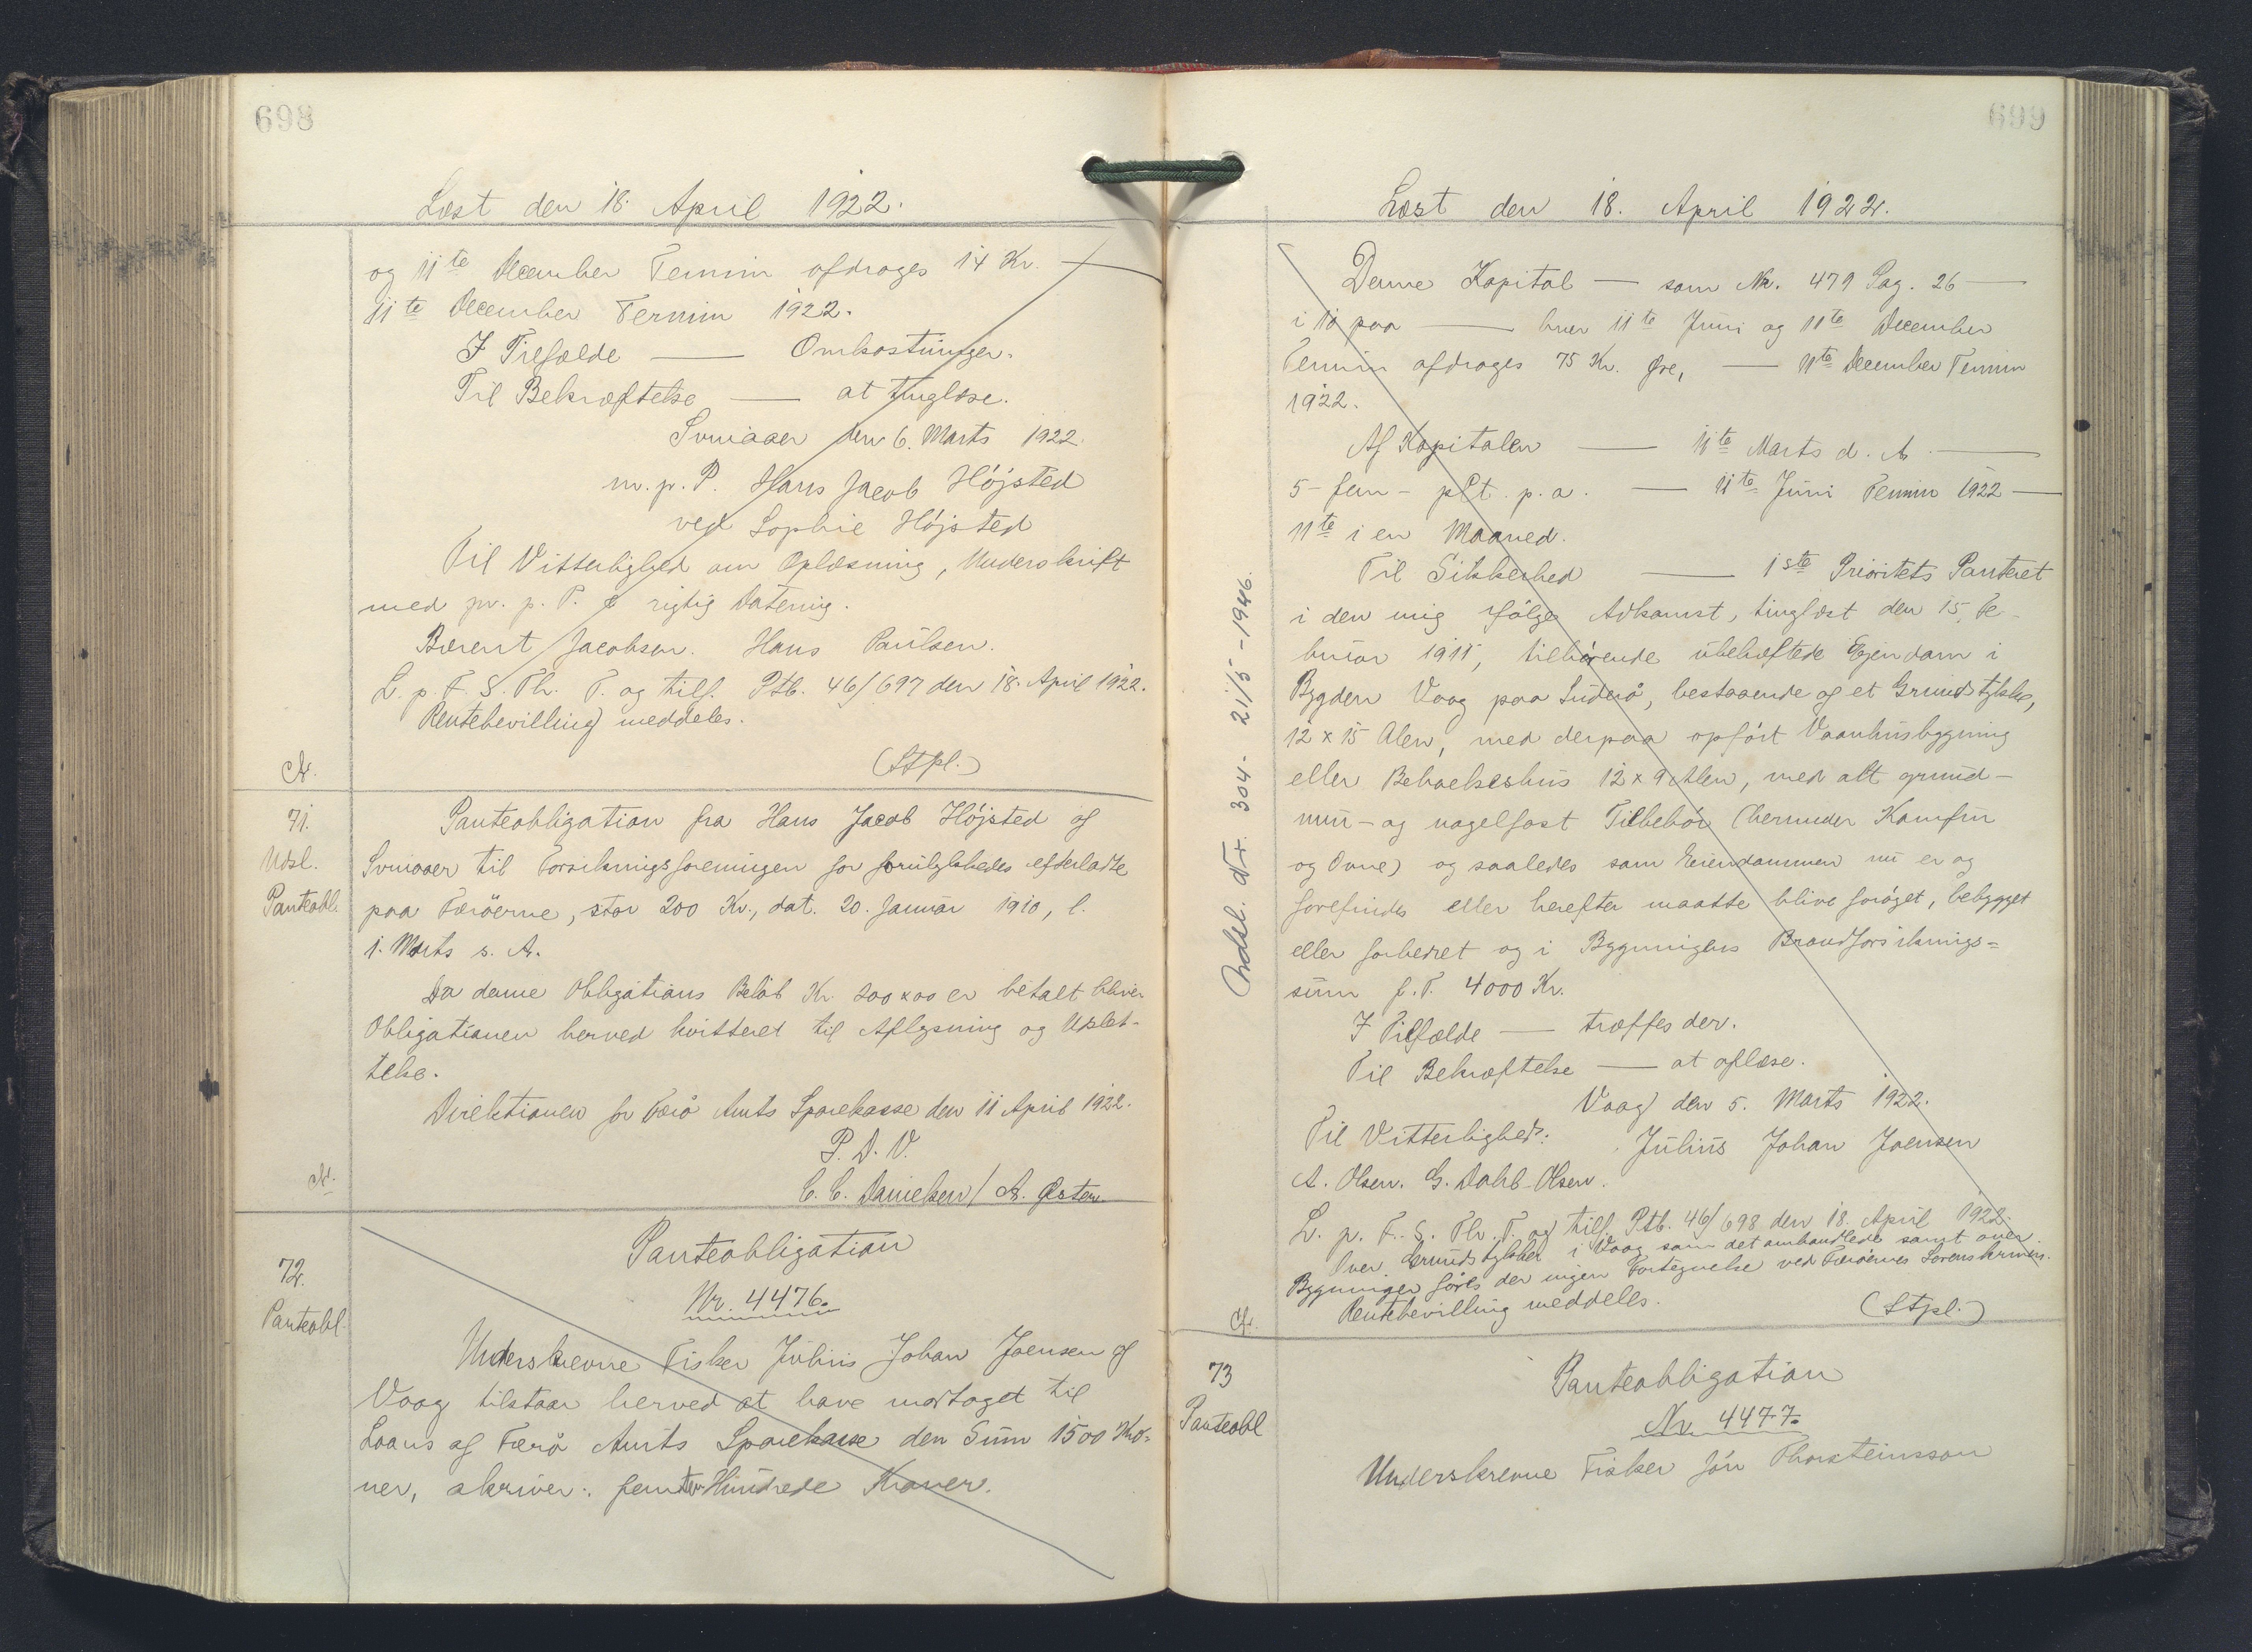 698
Læst den 18. April 1922.
og 11te December Termin afdrages 14 Kr. —
11te December Termin 1922.
I Tilfælde — Omkostninger.
Til Bekræftelse — at tinglæse.
Sumbøer den 6. Marts 1922.
m. p. P. Hans Jacob Højsted
ved Sophie Højsted
Til Vitterlighed om Oplæsning, Underskrift
med m. p. P. & rigtig Datering.
Berent Jacobsen. Hans Poulsen.
L. p. F. S. Th. T. og tilf. Ptb. 46/697 den 18. April 1922.
Rentebevilling meddeles.
(Stpl.)
71.
Udsl.
Panteobl.
Panteobligation fra Hans Jacob Højsted af
til Forsikringsforeningen for forulykkedes efterladte
paa Færöerne, stor 200 Kr., dat. 20. Januar 1910, l.
1. Marts s. A.
Da denne Obligations Beløb Kr. 200 x 00 er betalt bliver
Obligationen herved kvitteret til Aflysning og Udslet-
telse.
Direktionen for Færö Amts Sparekasse den 11 April 1922.
P. D. V.
C. C. Danielsen / A.
72.
Panteobl.
Panteobligation
Nr. 4476.
Underskrevne Fisker Julius Johan Joensen af
Vaag tilstaar herved at have modtaget til
Laans af Færö Amts Sparekasse den Sum 1500 Kro-
ner, skriver: femten Hundrede Kroner.
699
Læst den 18. April 1922.
Denne Kapital — som Nr. 479 Pag. 26 —
i to paa — hver 11te Juni og 11te December
Termin afdrages 75 Kr. Øre, — 11te December Termin
1922.
Af Kapitalen — 11te Marts d. A. —
5 - fem - pCt. p. a. — 11te Juni Termin 1922 —
11te i en Maaned.
Til Sikkerhed — 1ste Prioritets Panteret
i den mig ifølge Adkomst, tinglæst den 15. Fe-
bruar 1915, tilhørende ubehæftede Ejendom i
Bygden Vaag paa Suderö, bestaaende af et Grundstykke,
12 x 15 Alen, med derpaa opført Vaanhusbygning
eller Beboelseshus 12 x 9 Alen, med alt grund-
mur- og nagelfast Tilbehør (herunder Komfur
og Ovne) og saaledes som Eiendommen nu er og
forefindes eller herefter maatte blive forøget, bebygget
eller forbedret og i Bygningens Brandforsikrings=
sum p. T. 4000 Kr.
I Tilfælde — træffes der.
Til Bekræftelse — at aflæse.
Vaag den 5. Marts 1922.
Til Vitterlighed: Julius Johan Joensen
A. Olsen. G. Dahl-Olsen.
L. p. F. S. Th. T. og tilf. Ptb. 46/698 den 18. April 1922.
Over Grundstykker i Vaag som det omhandlede samt over
Bygninger føres der ingen Fortegnelse ved Færöernes Sorenskriveri.
Rentebevilling meddeles.
(Stpl.)
Udsl. Nr. 304 - 21/5 - 1946.
73
Panteobl
Panteobligation
Nr. 4477.
Underskrevne Fisker Jón Thorsteinsson